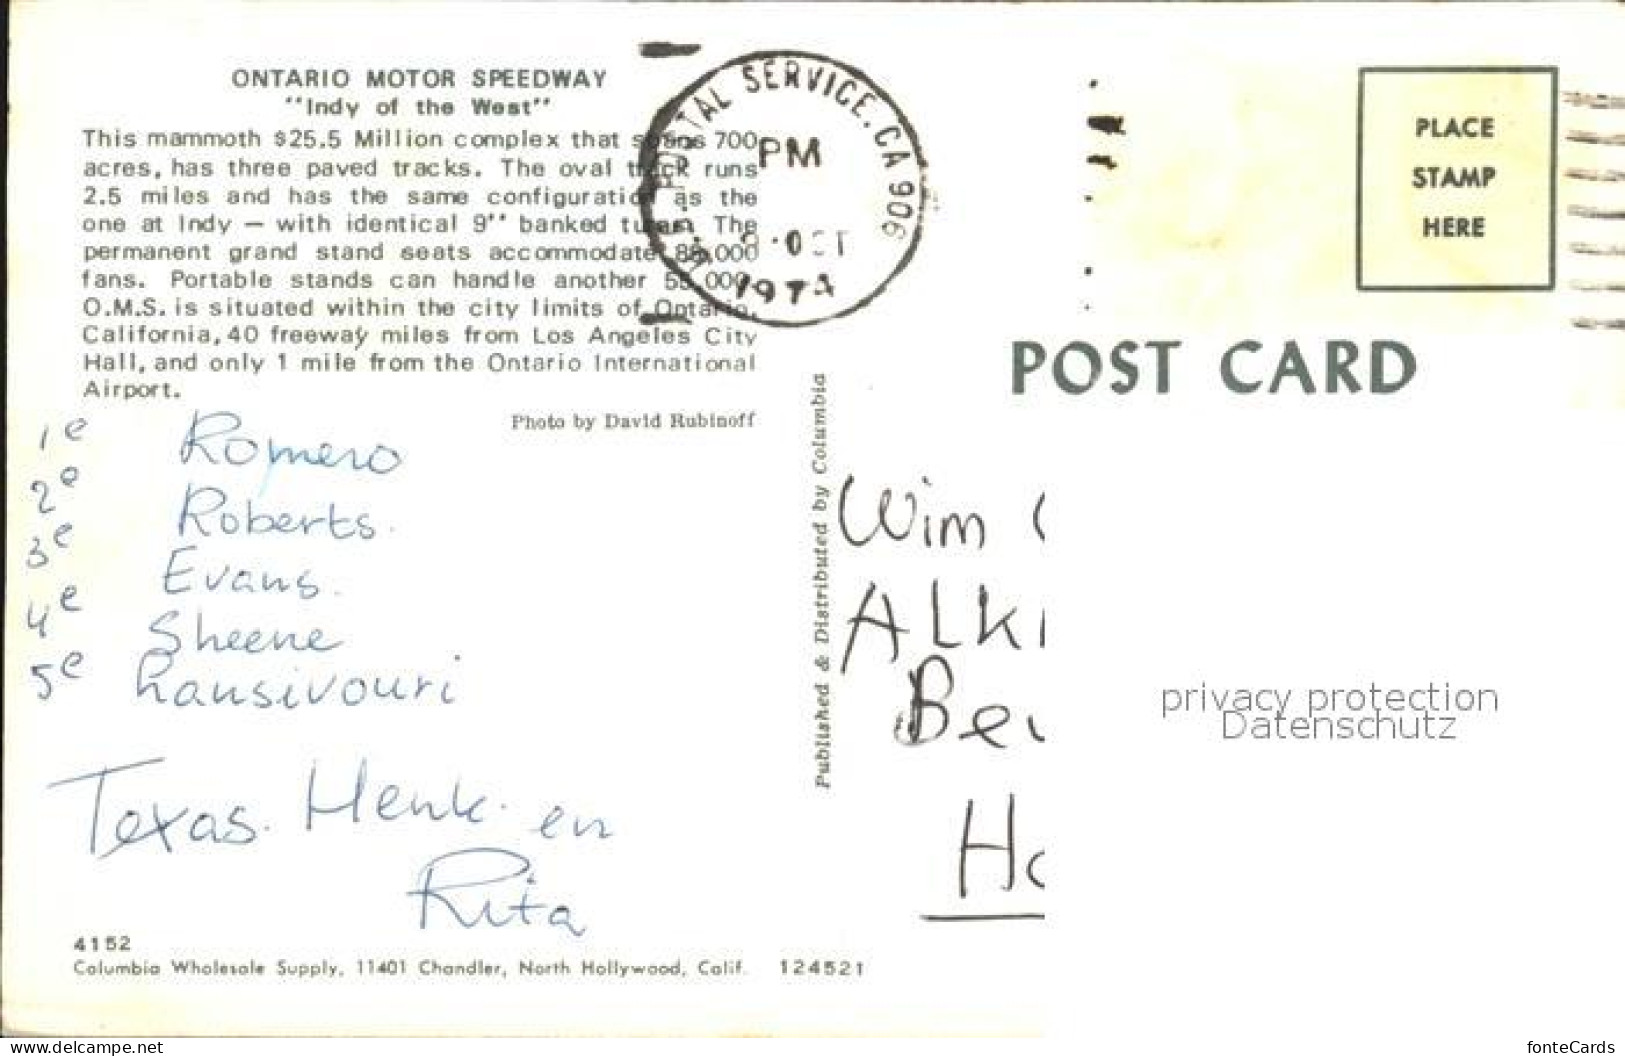 ONTARIO MOTOR SPEEDWAY
"Indy of the West"
This mammoth $25.5 Million complex that spans 700
acres, has three paved tracks. The oval track runs
2.5 miles and has the same configuration as the
one at Indy — with identical 9" banked turns. The
permanent grand stand seats accommodate 000
fans. Portable stands can handle another 000.
O.M.S. is situated within the city limits of Ontario,
California, 40 freeway miles from Los Angeles City
Hall, and only 1 mile from the Ontario International
Airport.
Photo by David Rubinoff
1e Romero
2e Roberts.
3e Evans.
4e Sheene
5e Lansivouri
Texas. Henk. en
Rita
4152
Columbia Wholesale Supply, 11401 Chandler, North Hollywood, Calif. 124521
Published & Distributed by Columbia
U.S. POSTAL SERVICE, CA 906
PM
8 OCT
1974
PLACE
STAMP
HERE
POST CARD
Wim
ALKI
Be
Ho
privacy protection
Datenschutz
www.delcampe.net
fonteCards